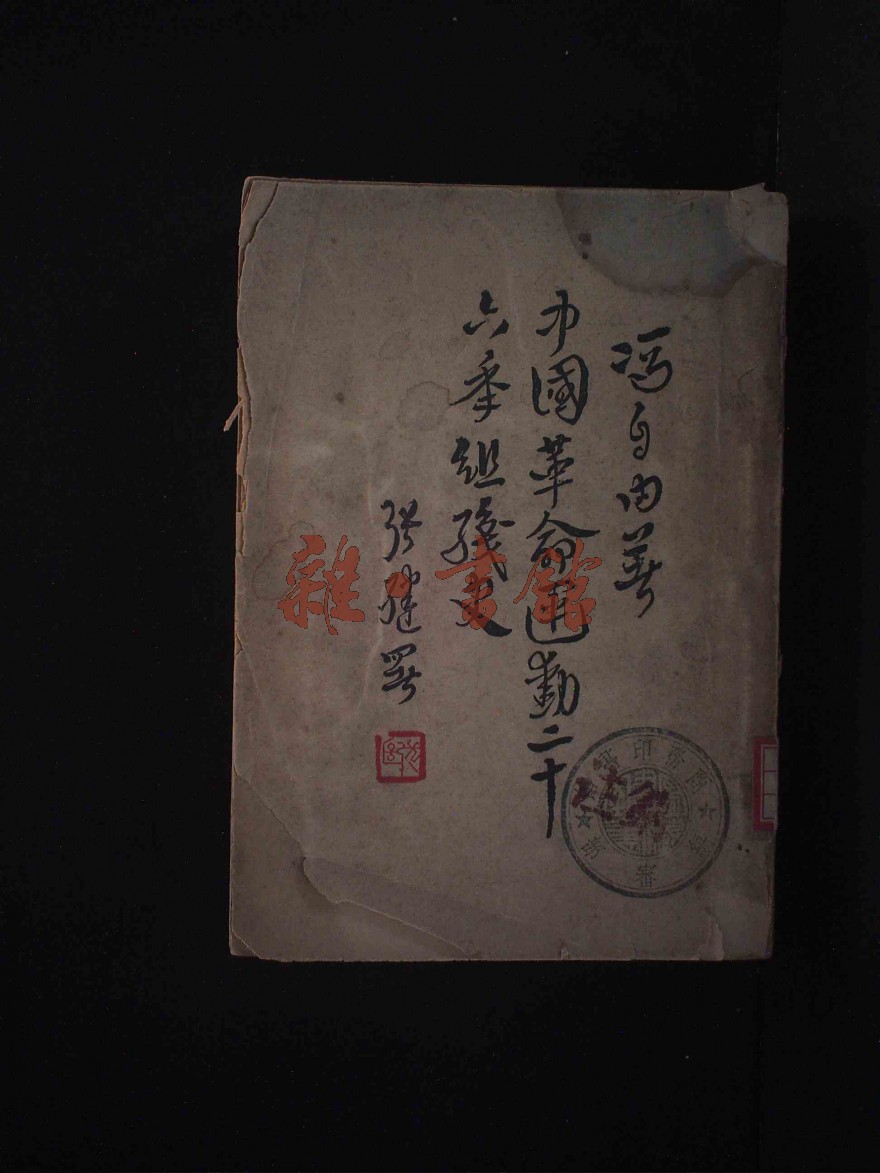 馮自由著
中國革命運動二十
六年組織史
張繼署
雜書館
印
審